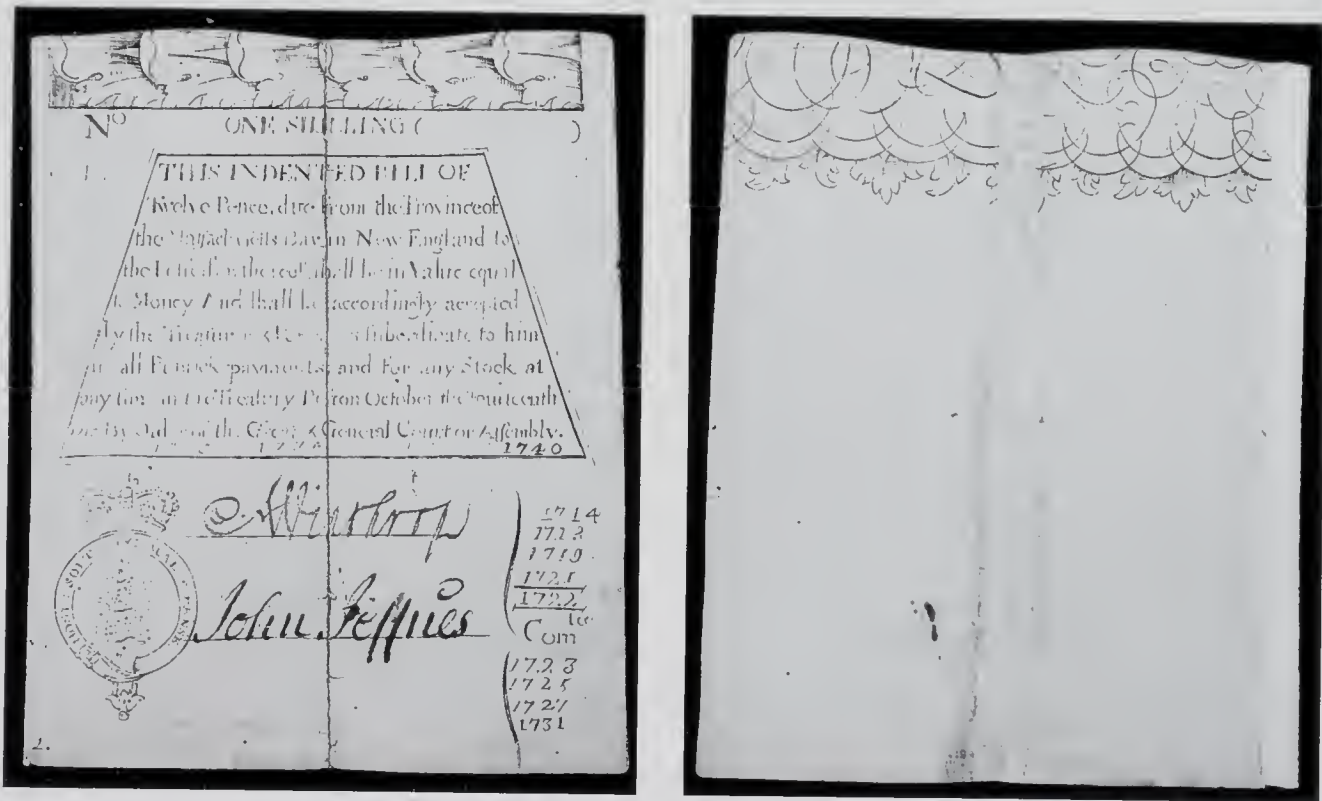 No ONE SHILLING ( )
THIS INDENTED BILL OF
Twelve Pence, due from the Province of
the Massachusetts Bay in New England to
the thereof shall be in Value equal
to Money And shall be accordingly accepted
by the Treasurer subordinate to him
in all Publick payments and For any Stock at
any time in the Treasury Boston October the Fourteenth
By Order of the Great & General Court or Assembly.
1740
AWinthrop
John Jeffries
1714
1713
1719
1721
1722
Com tee
1723
1725
1727
1731
HONI SOIT MAL PENSE